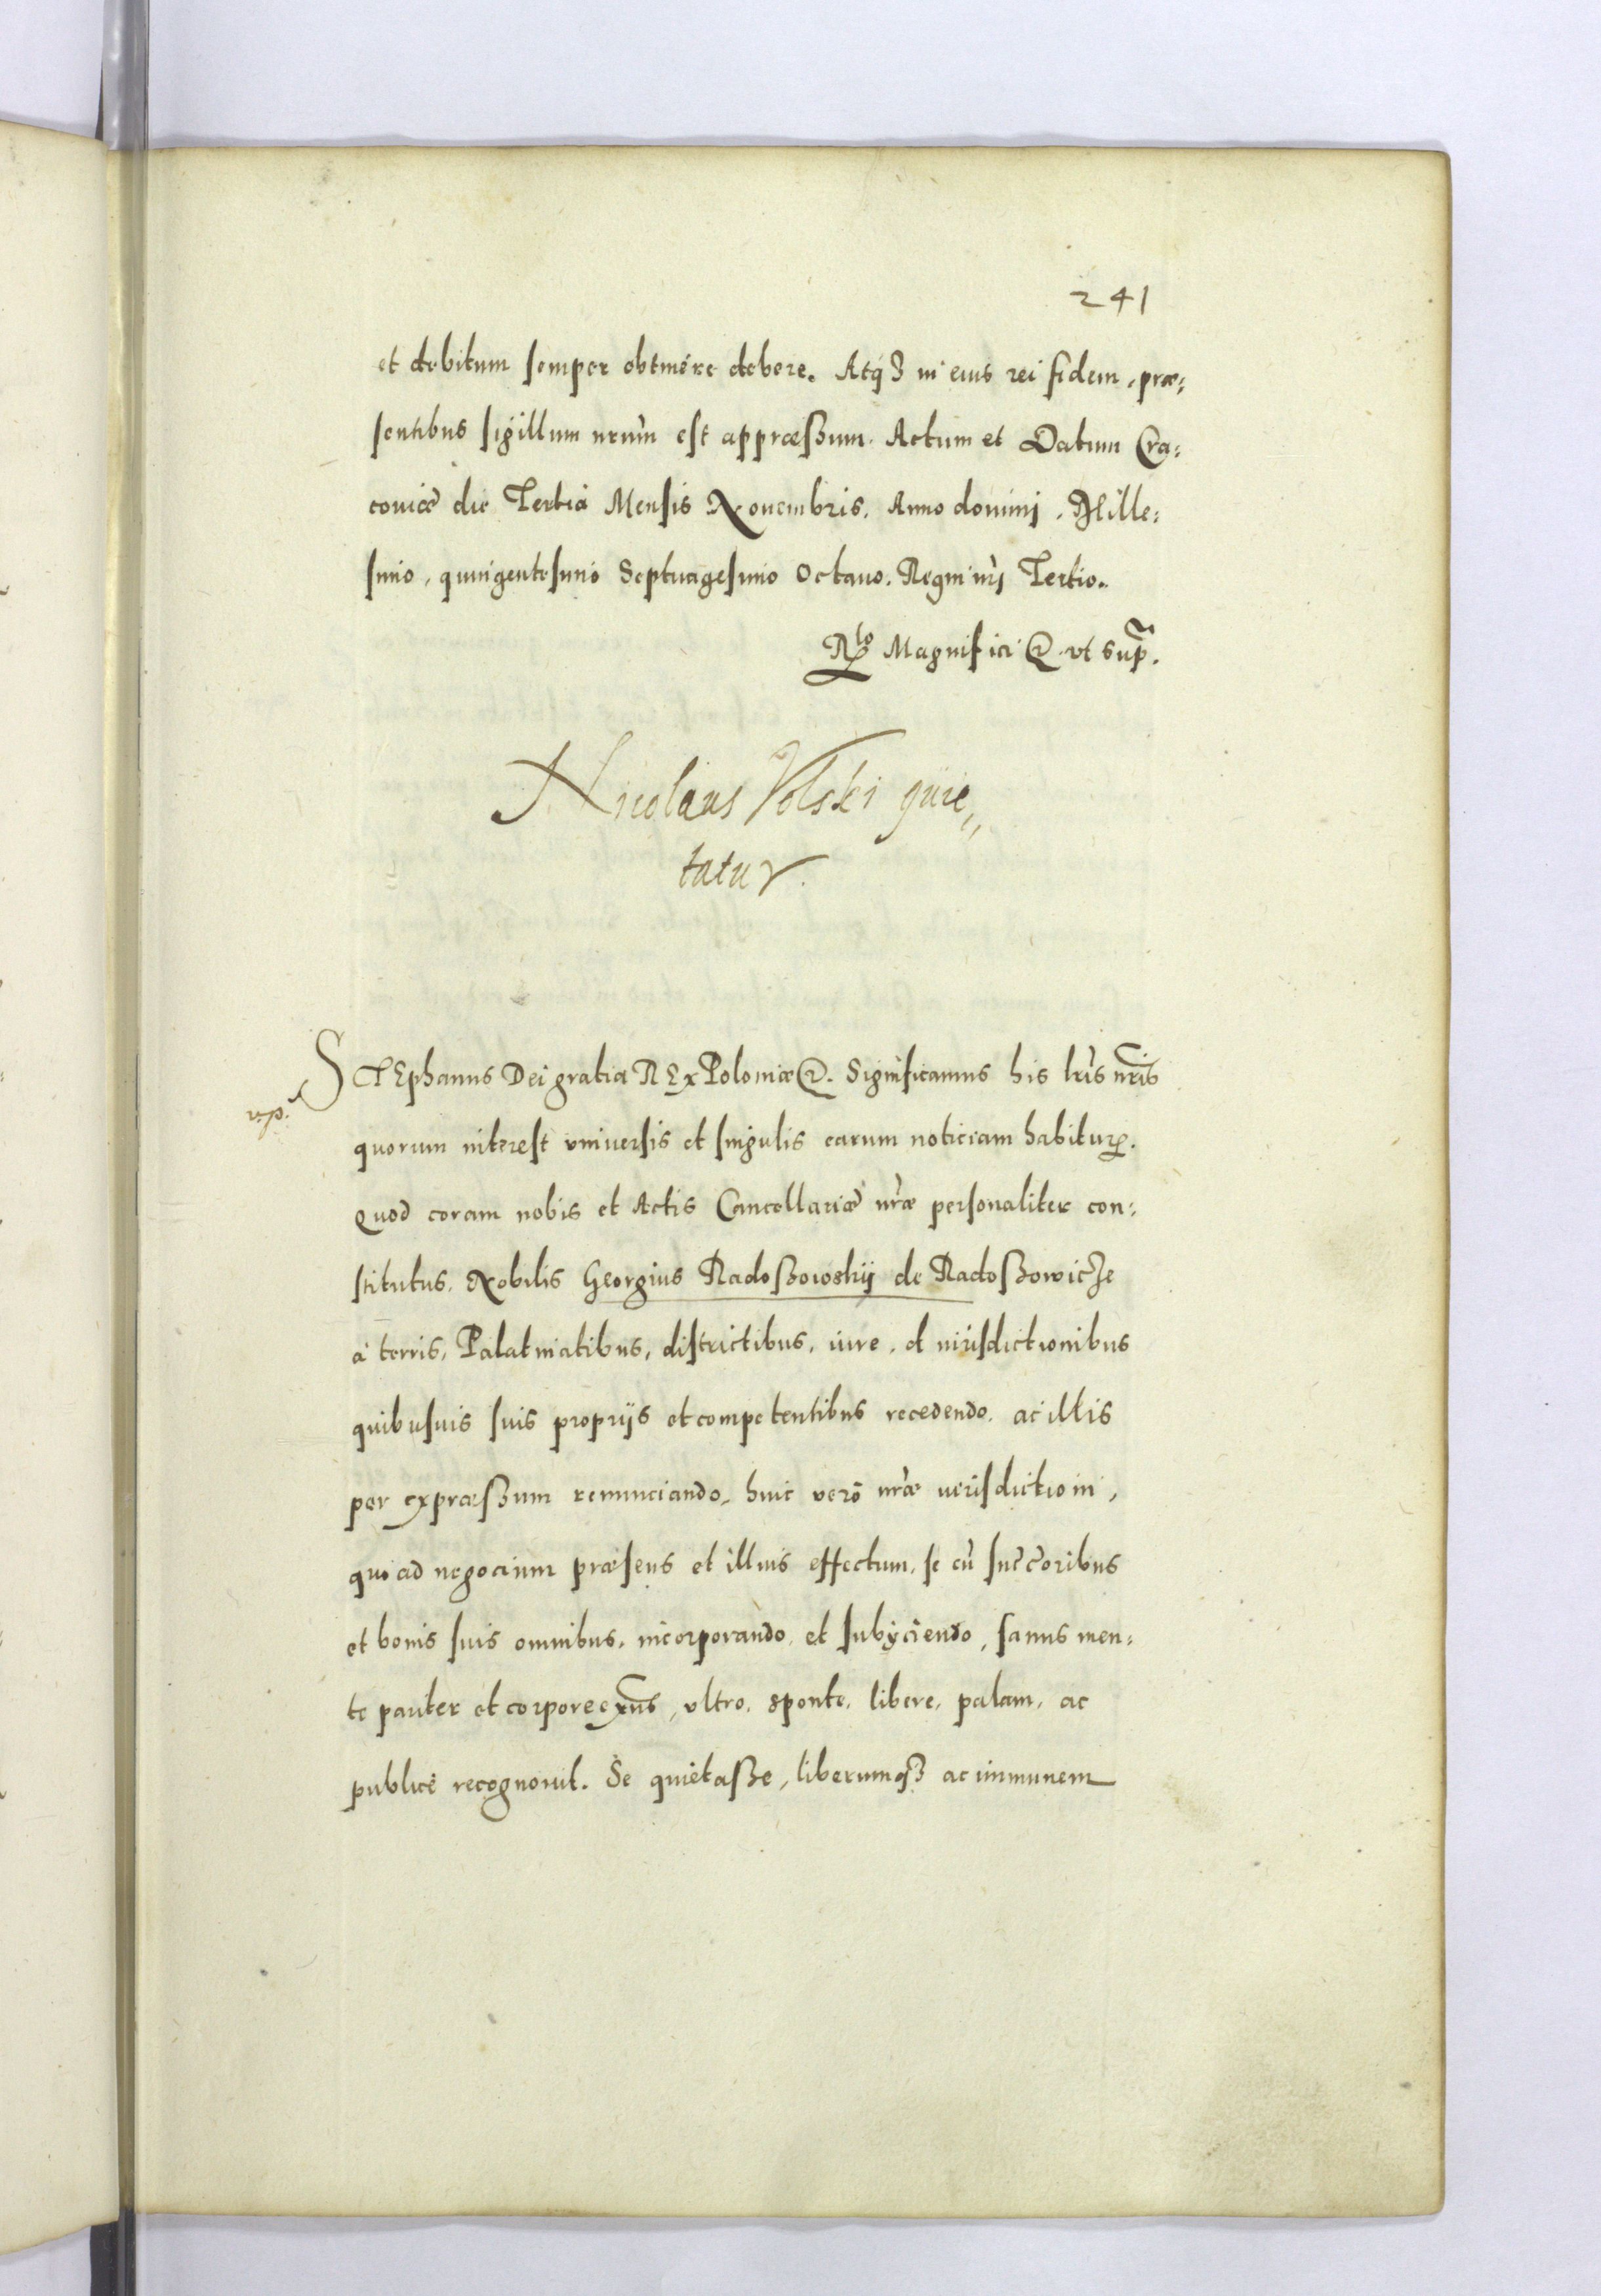 241
et debitum semper obtinere debere. Atq3 in eius rei fidem, præ:
sentibus sigillum nrum est appræsßum. Actum et Datum Cra:
coviæ die Tertia Mensis Novembris. Anno domini. Mille:
simo, quingentesimo Septuagesimo Octavo. Regni nri Tertio.
Rto Magnifici &. vt supr.
Nicolaus Volski quie„
tatur.
STEphanus Dei gratia REx Poloniæ &. Significamus his lris nris
v.p.
quorum interest vniversis et singulis earum noticiam habitur.
Quod coram nobis et Actis Cancellariæ nræ personaliter con:
stitutus. Nobilis Georgius Radoßowskij de Radoßowicze
a terris, Palatinatibus, districtibus, iure, et iurisdictionibus
quibusuis suis proprijs et competentibus recedendo, ac illis
per expræßum renunciando, huic vero nræ iurisdictioni,
quo ad negocium præsens et illius effectum, se cu succoribus
et bonis suis omnibus, incorporando, et subijciendo, sanus men:
te pariter et corpore exns, vltro, sponte, libere, palam, ac
publice recognovit. Se quietaße, liberumq3 ac immunem